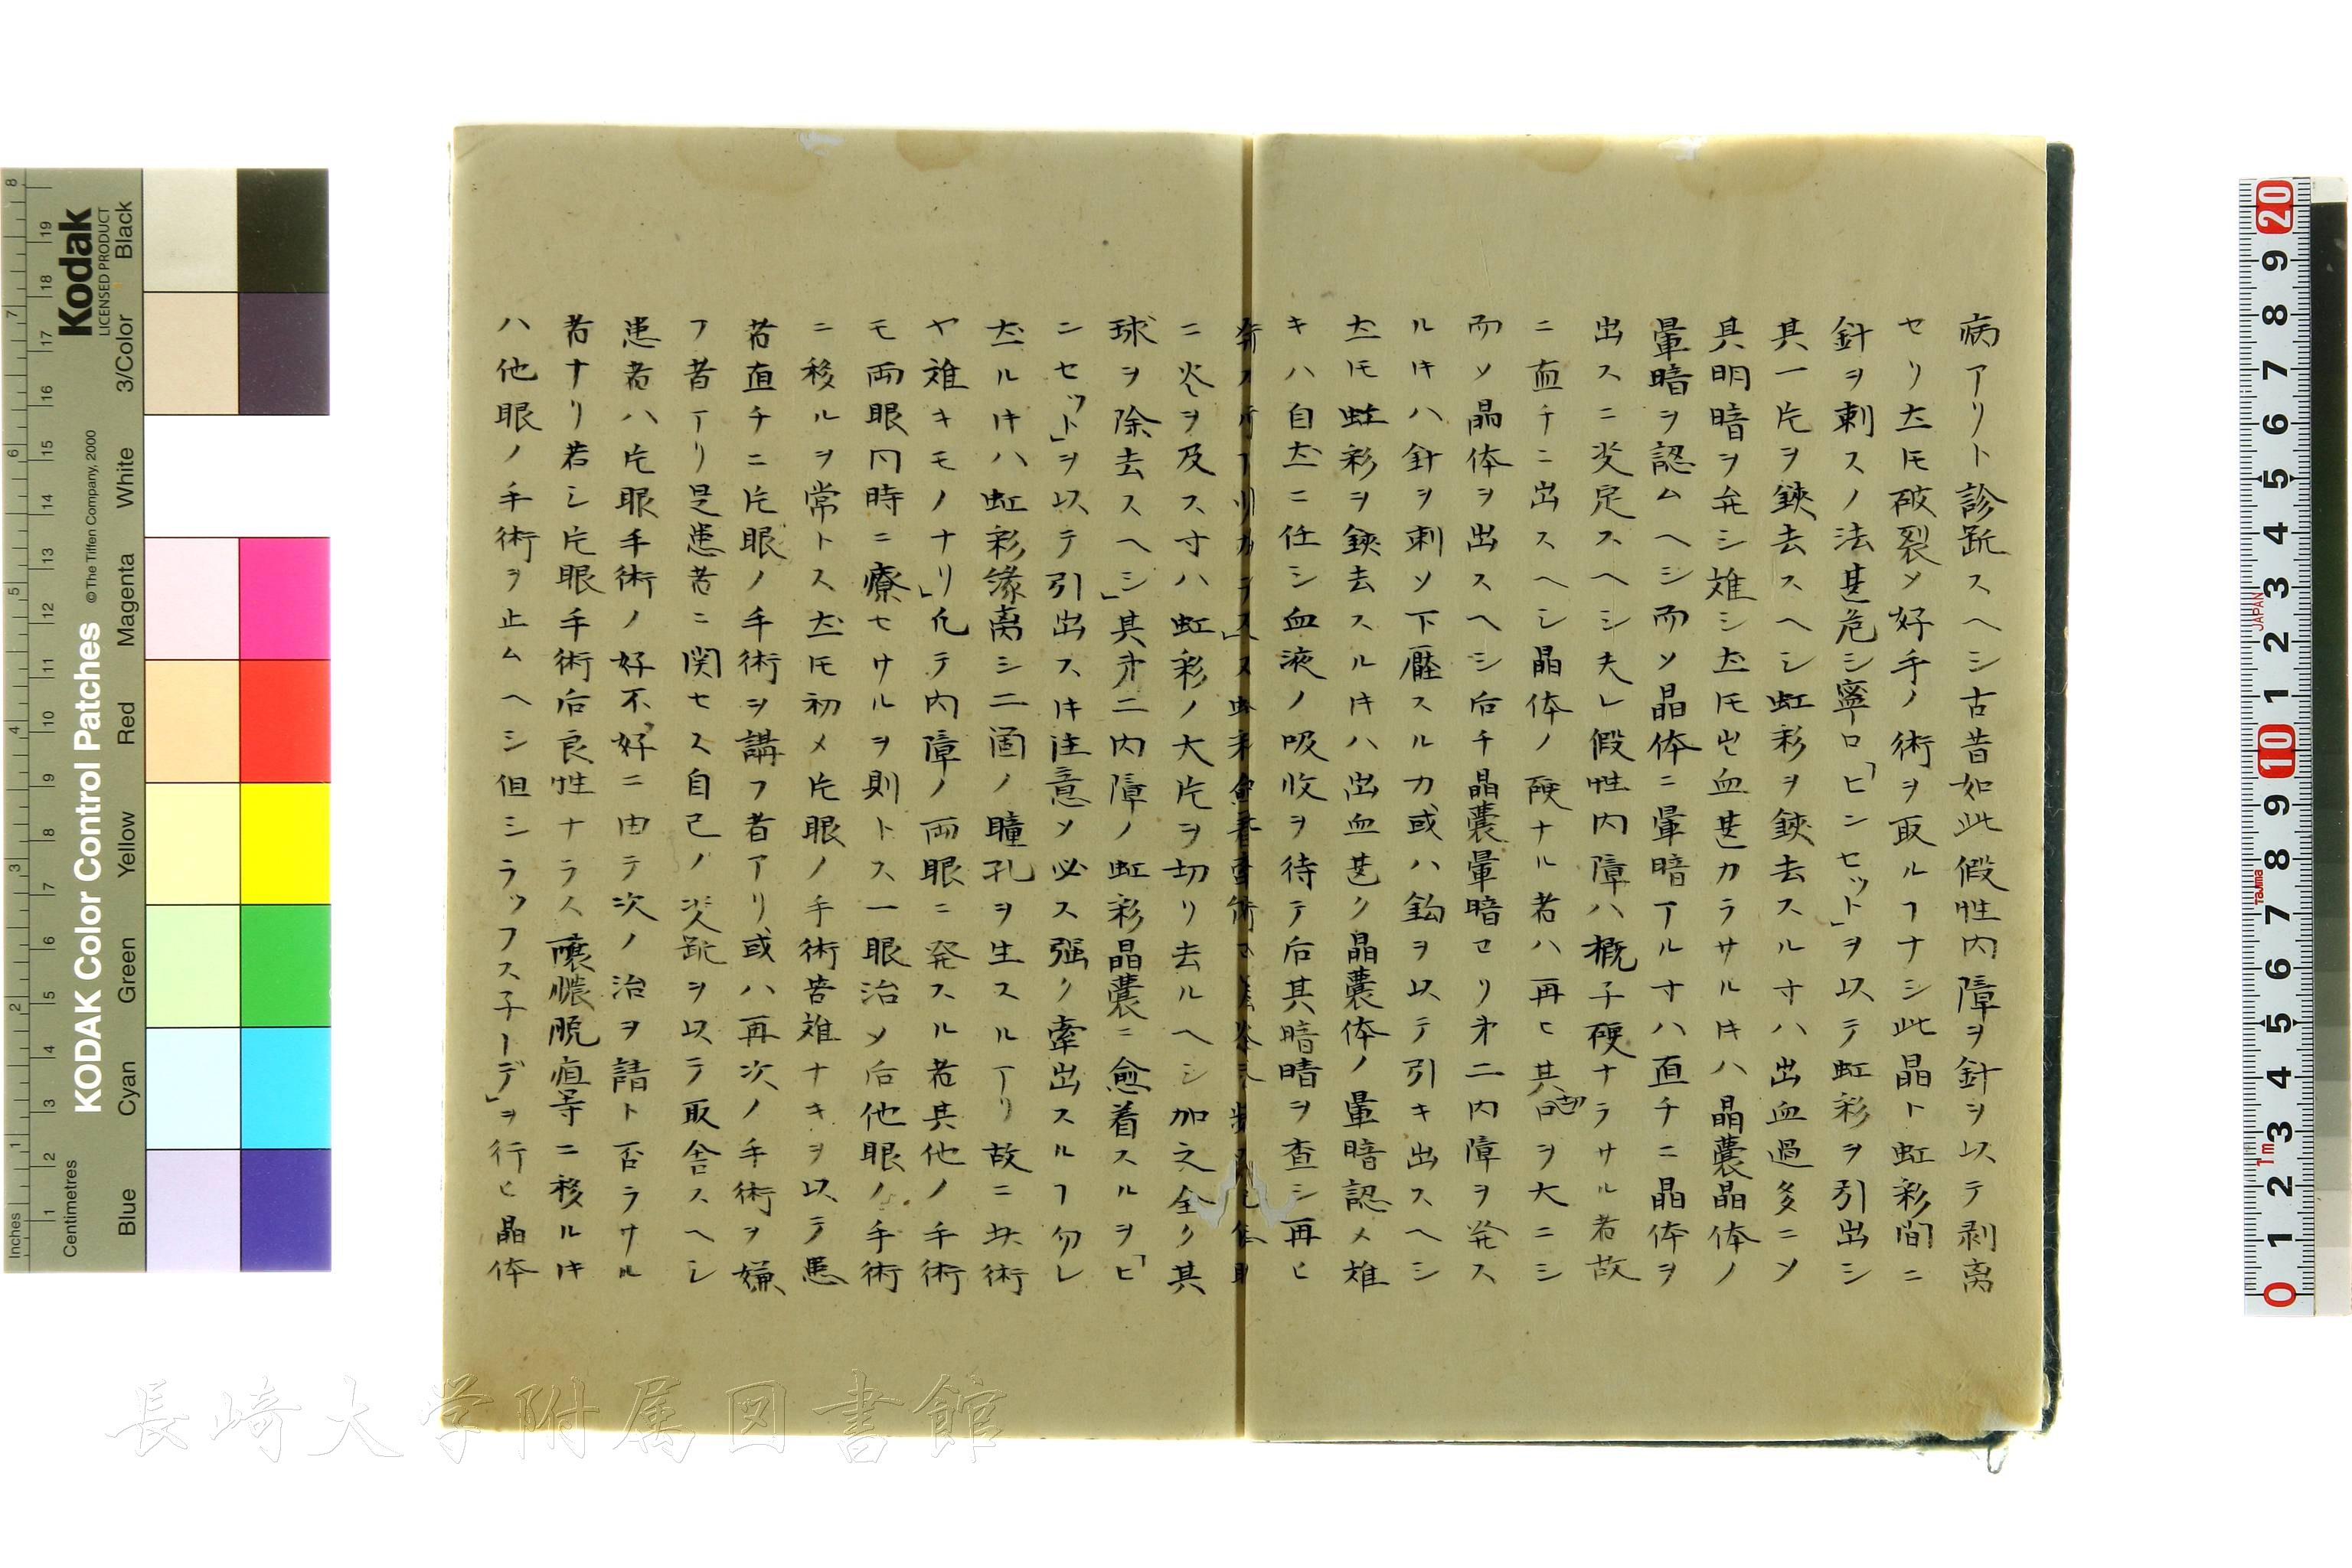 病アリト診断スヘシ古昔如此假性内障ヲ針ヲ以テ剥离
セリ𪜈破裂メ好手ノ術ヲ取ルヿナシ此晶ト虹彩間ニ
針ヲ刺スノ法甚危シ寧ロ「ピンセット」ヲ以テ虹彩ヲ引出シ
其一片ヲ鋏去スヘシ虹彩ヲ鋏去スル寸ハ出血過多ニソ
其明暗ヲ弁シ雄シ𪜈出血甚カラサル時ハ晶嚢晶体ノ
暈暗ヲ認ムヘシ而ソ晶体ニ暈暗アル寸ハ直チニ晶体ヲ
出スニ决定スヘシ夫レ假性内障ハ概子硬ナラサル者故
ニ直チニ出スヘシ晶体ノ硬ナル者ハ再ヒ其切口ヲ大ニシ
而ソ晶体ヲ出スヘシ后チ晶嚢暈暗セリ第二内障ヲ発ス
ル时ハ針ヲ刺ソ下壓スルカ或ハ鈎ヲ以テ引キ出スヘシ
𪜈虹彩ヲ鋏去スル时ハ出血甚ク晶嚢体ノ暈暗認メ雄
キハ自然ニ任シ血液ノ吸收ヲ待テ后其暗晴ヲ査シ再ヒ
ニ炎ヲ及ス寸ハ虹彩ノ大片ヲ切リ去ルヘシ加之全ク其
球ヲ除去スヘシ」其第二内障ノ虹彩晶嚢ニ愈着スルヲ「ピ
ンセット」ヲ以テ引出ス时注意ソ必ス强ク牽出スルヿ勿レ
然ル时ハ虹彩緣离シ二箇ノ瞳孔ヲ生スルヿアリ故ニ此術
ヤ雄キモノナリ」凡テ内障ノ両眼ニ発スル者其他ノ手術
モ両眼同時ニ療セサルヲ則トス一眼治メ后他眼ノ手術
ニ移ルヲ常トス𪜈初メ片眼ノ手術苦雄ナキヲ以テ患
者直チニ片眼ノ手術ヲ講フ者アリ或ハ再次ノ手術ヲ嫌
フ者アリ是患者ニ関セス自己ノ决断ヲ以テ取舎スヘシ
患者ハ片眼手術ノ好不好ニ由テ次ノ治ヲ請ト否ラサル
者ナリ若シ片眼手術后良性ナラス釀膿脱疽等ニ移ル时
ハ他眼ノ手術ヲ止ムヘシ但シラッフス子ーデ」ヲ行ヒ晶体
KODAK Color Control Patches
© The Tiffen Company, 2000
Kodak
LICENSED PRODUCT
Inches
Centimetres
Blue
Cyan
Green
Yellow
Red
Magenta
White
3/Color
Black
JAPAN
Tajima
長崎大学附属図書館